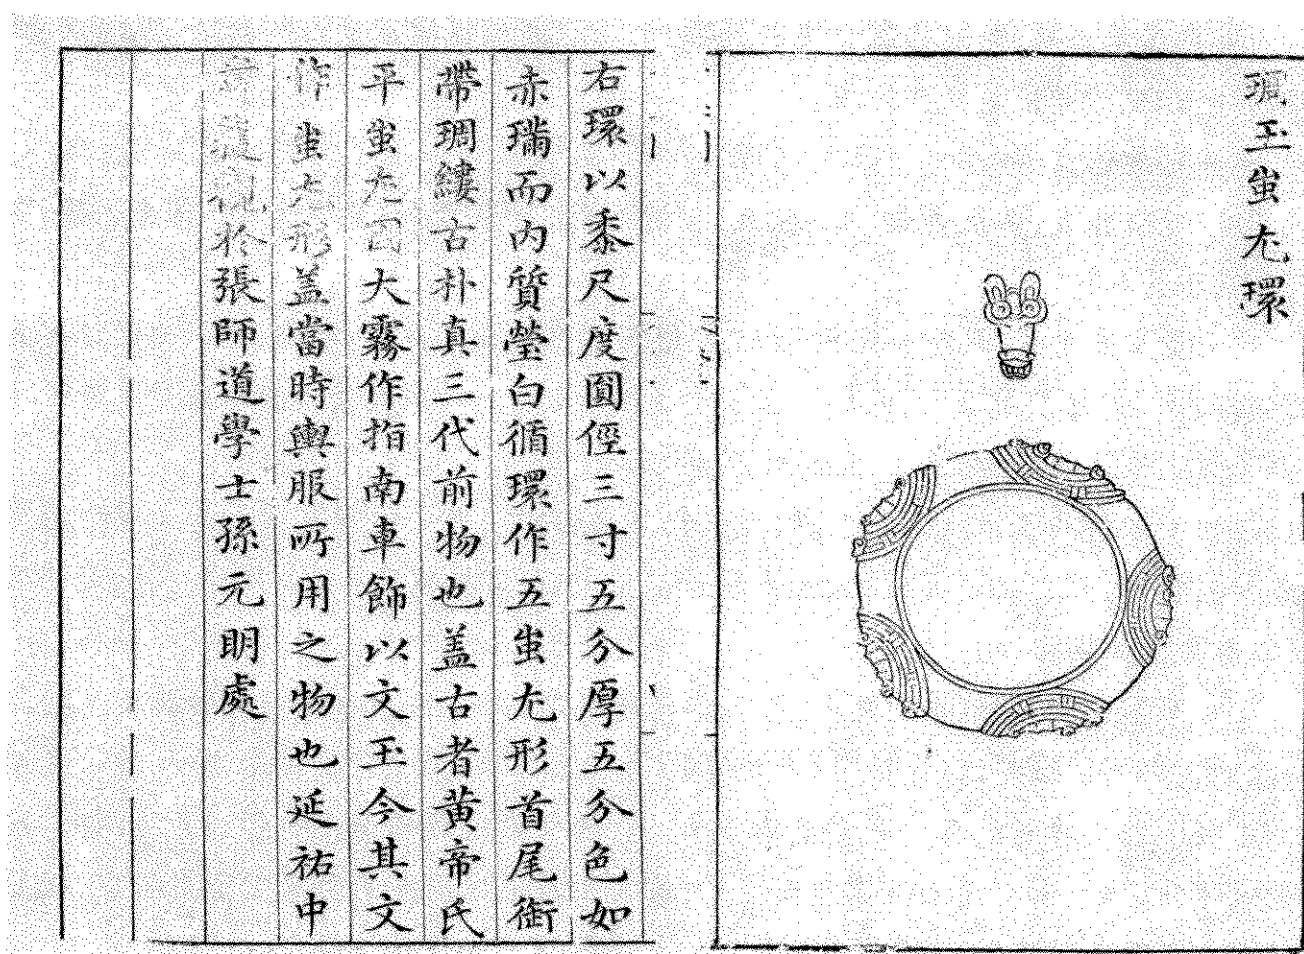 琱玉蚩尤環
右環以黍尺度圓俓三寸五分厚五分色如
赤璊而内質瑩白循環作五蚩尤形首尾銜
帶琱縷古朴真三代前物也盖古者黃帝氏
平蚩尤因大霧作指南車飾以文玉今其文
作蚩尤形盖當時輿服所用之物也延祐中
獲觀於張師道學士孫元明處